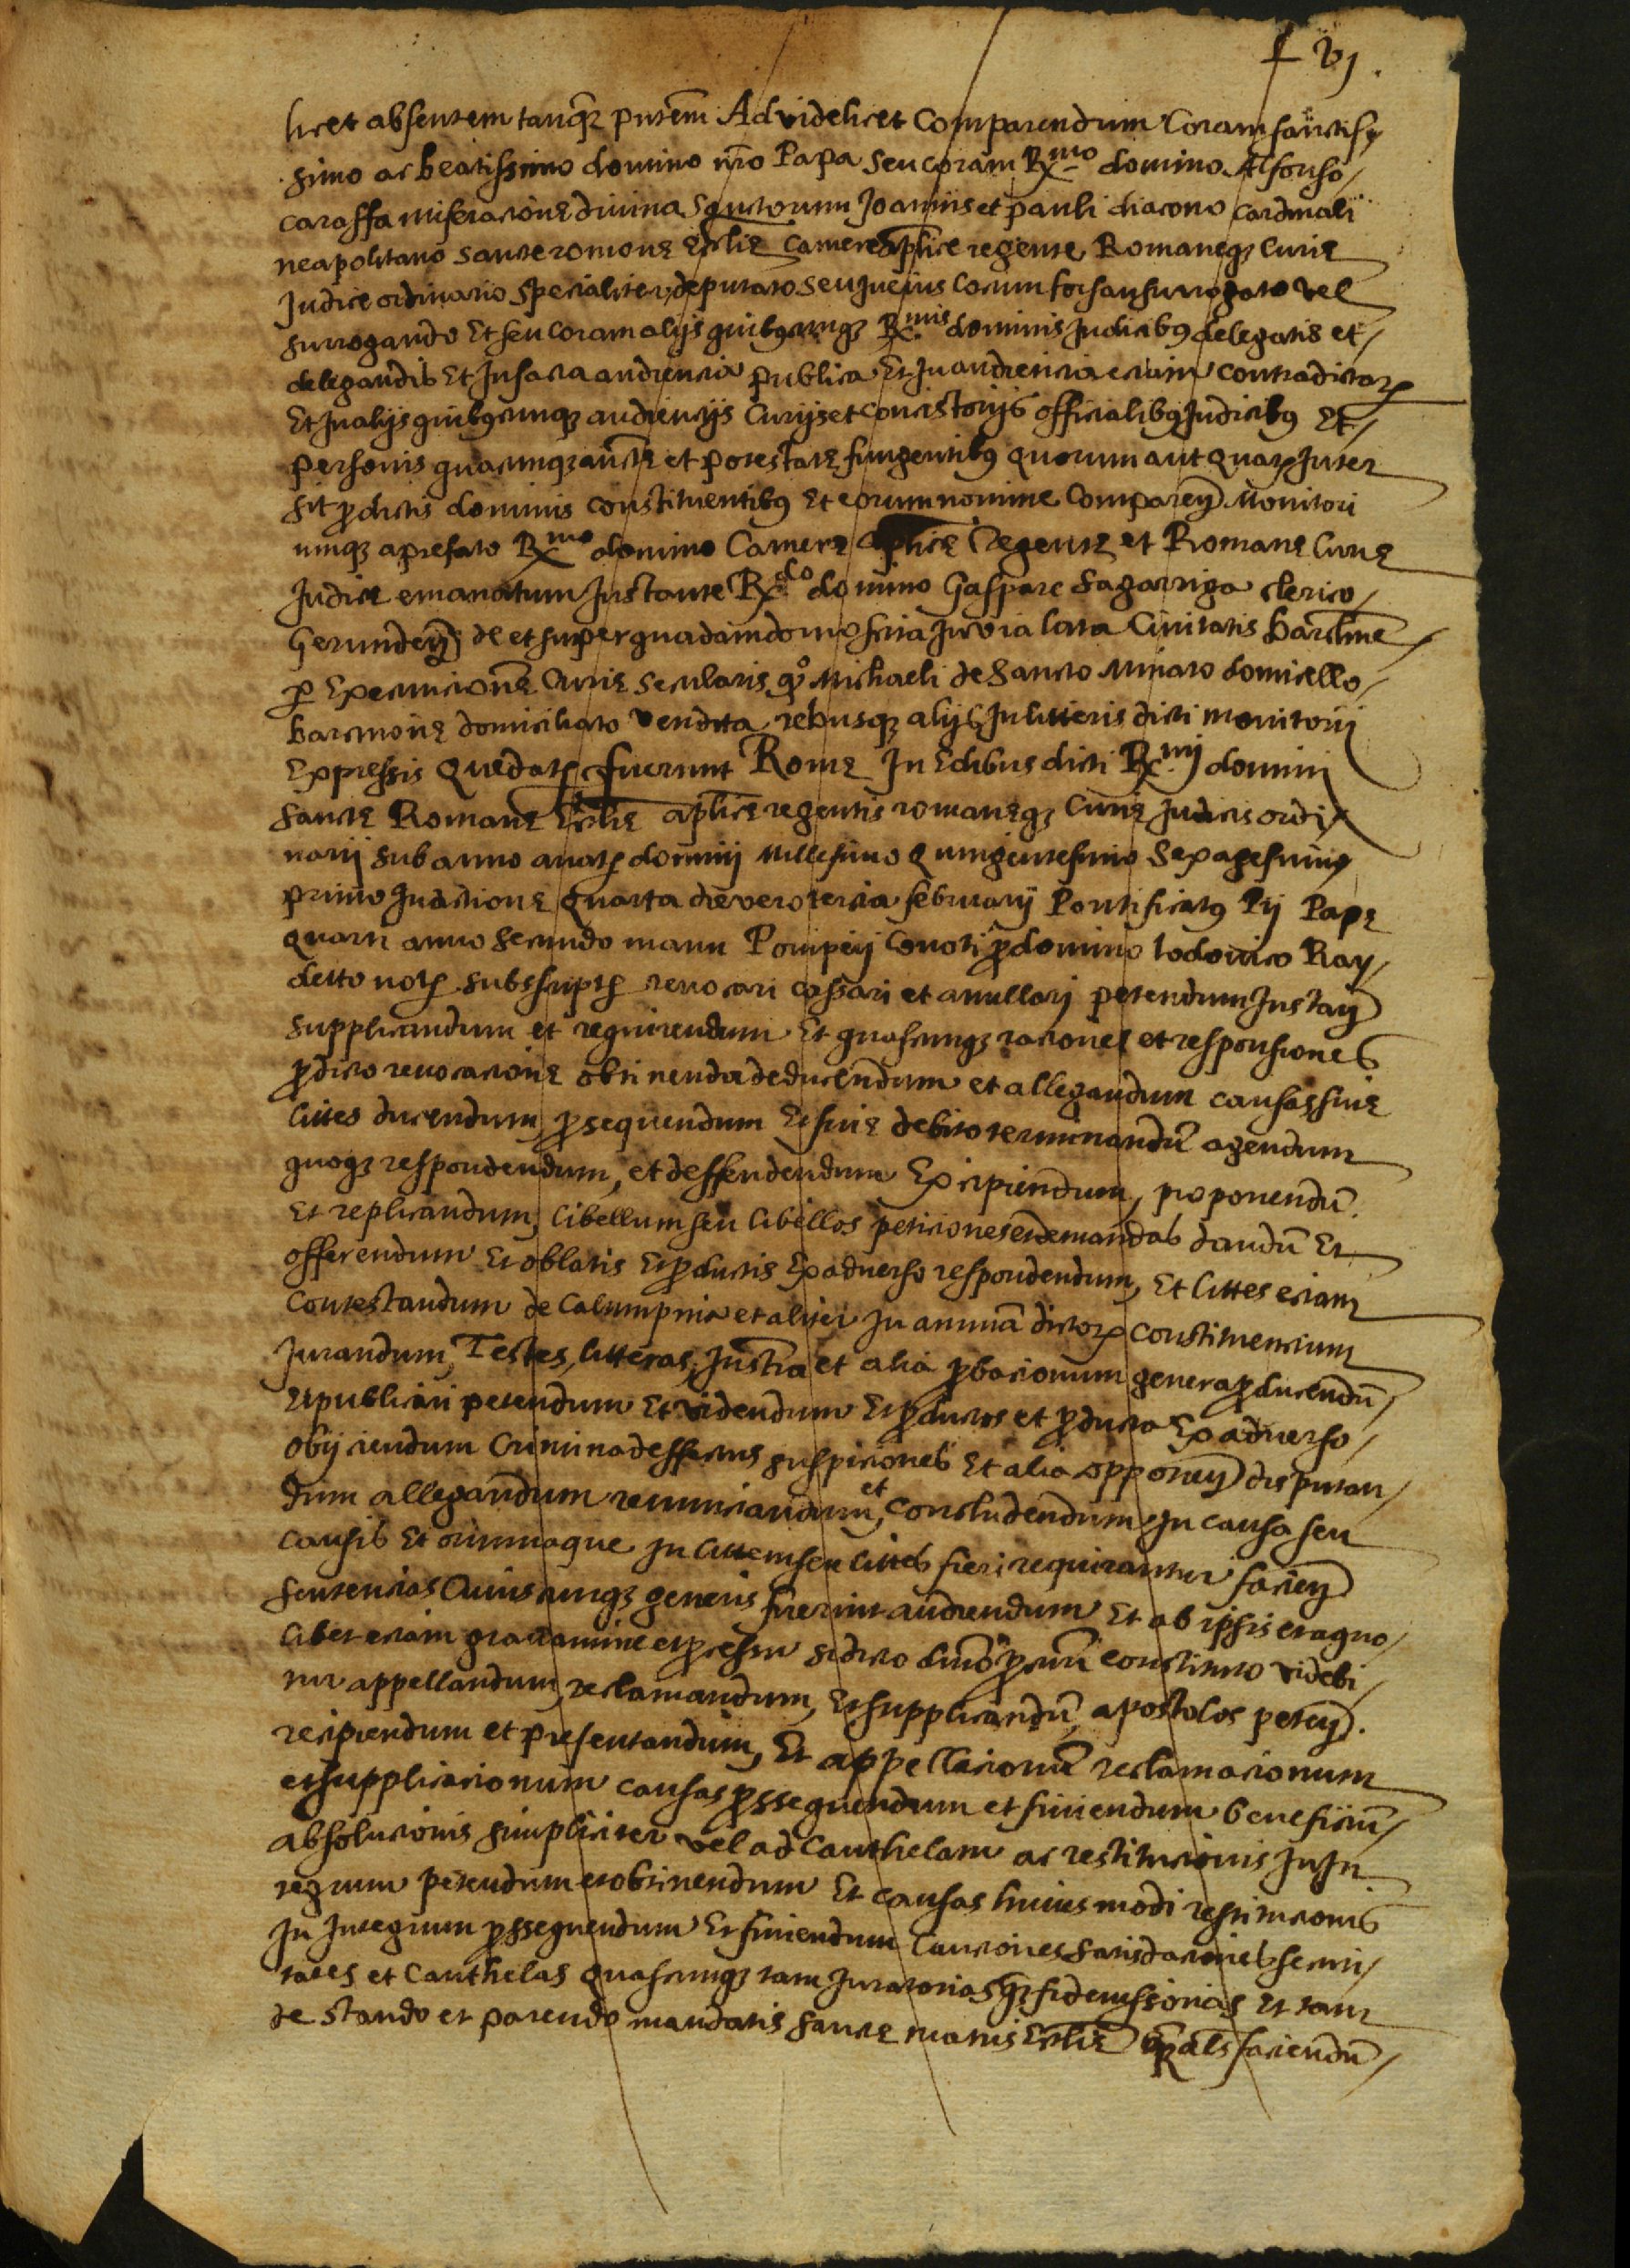 f vj.
licet absentem tanq̄ pn̄tem Ad videlicet Comparendum Coram sanctis,
simo ac beatissimo domino nr̄o Papa seu coram Rx.mo domino Alfonso,
caraffa miseracione divina Sanctorum Joannis et pauli diacono cardinali
neapolitano sancte romane Ecclīe camere aplīce regente Romaneq3 curie
Judice ordinario specialiter deputato seu In eius locum forsan surrogato vel
surrogando Et seu coram alijs quibuscunq3 Rx.mis dominis Judicibus delegatis et,
delegandis Et In sacra audiencia publica Et In audiencia eciam contradictar̄
Et In alijs quibuscunq3 audiencijs Curijs et concistorijs officialibus Judicibus Et,
personis quacunq3 auctē et potestate fungentibus quorum aut quar̄ Inter
sit p̄ dictis dominis constituentibus Et eorum nomine Comparen̄ Monitori
umq3 a prefato Rx.mo domino Camere aplīce Regente et Romane Curie
Judice emanatum Instante Rx.do domino Gaspare Sagarriga clerico,
Gerunden̄ de et super quadam domo sita In via lata Civitatis barchn̄e,
p̄ Execucione Curie secularis q̊ Michaeli de Sancto Miniato domicello,
barcinone domiciliato vendita rebusq3 alijs In litteris dicti monitorij
Expressis que dat̄ fuerunt Rome In Edibus dicti Rx.mij domini
sancte Romane Ecclīe aplīce regentis romaneq3 Curie Judicis ordi,
narij sub anno a nat̄ domini Millesimo quingentesimo Sexagesimo
primo Indictione quarta die vero tercia february Pontificatus Pij Pape
quarti anno secundo manu Pompeij Conoti p̄ domino lodovico Ray,
detto not̄ subsscript̄ revocari cassari et anullari petendum Instan̄
supplicandum et requirendum Et quascunq3 raciones et responsiones
p̄ dicto revocacione obtinenda deducendum et allegandum causas sive
littes ducendum p̄sequendum Et sine debito terminandū agendum
quoq3 respondendum, et deffendendum Excipiendum, proponendū
Et replicandum, libellum seu libellos peticiones et demandas dandū Et
offerendum Et oblatis Et p̄ductis Ex adverso respondendum, Et littes eciam
Contestandum de Calumpnia et aliter In animā dictor̄ constituencium
Jurandum, Testes, litteras, Instrā et alia p̄bacionum genera p̄ducendū,
Et publicari petendum Et videndum Et p̄ductos et p̄ducta Ex adverso,
obijciendum Crimina deffectus suspiciones Et alia opponen̄ disputan,
dum allegandum renunciandum, et Concludendum In causa seu
causis Et omniaque In littem seu littes fieri requirantur facien̄
sentencias Cuiuscunq3 generis fuerint audiendum Et ab ipsis et a quo,
libet eciam gravamine et p̄cessu si dicto dn̄o p̄curī constituto videbi,
tur appellandum, reclamandum, Et supplicandū apostolos peten̄.
recipiendum et presentandum, Et appellacionū reclamacionum
et supplicacionum causas p̄ssequendum et finiendum beneficiū,
absolucionis simpliciter vel ad Cauthelam ac restitucionis In In
tegrum petendum et obtinendum Et causas huiusmodi restitucionis
In Integrum p̄ssequendum Et finiendum Cauciones satisdaciones securi,
tates et Cauthelas quascunq3 tam Juratorias q̄3 fideiussorias Et tam
de stando et parendo mandatis sancte matris Ecclīe q̄ als faciendū,